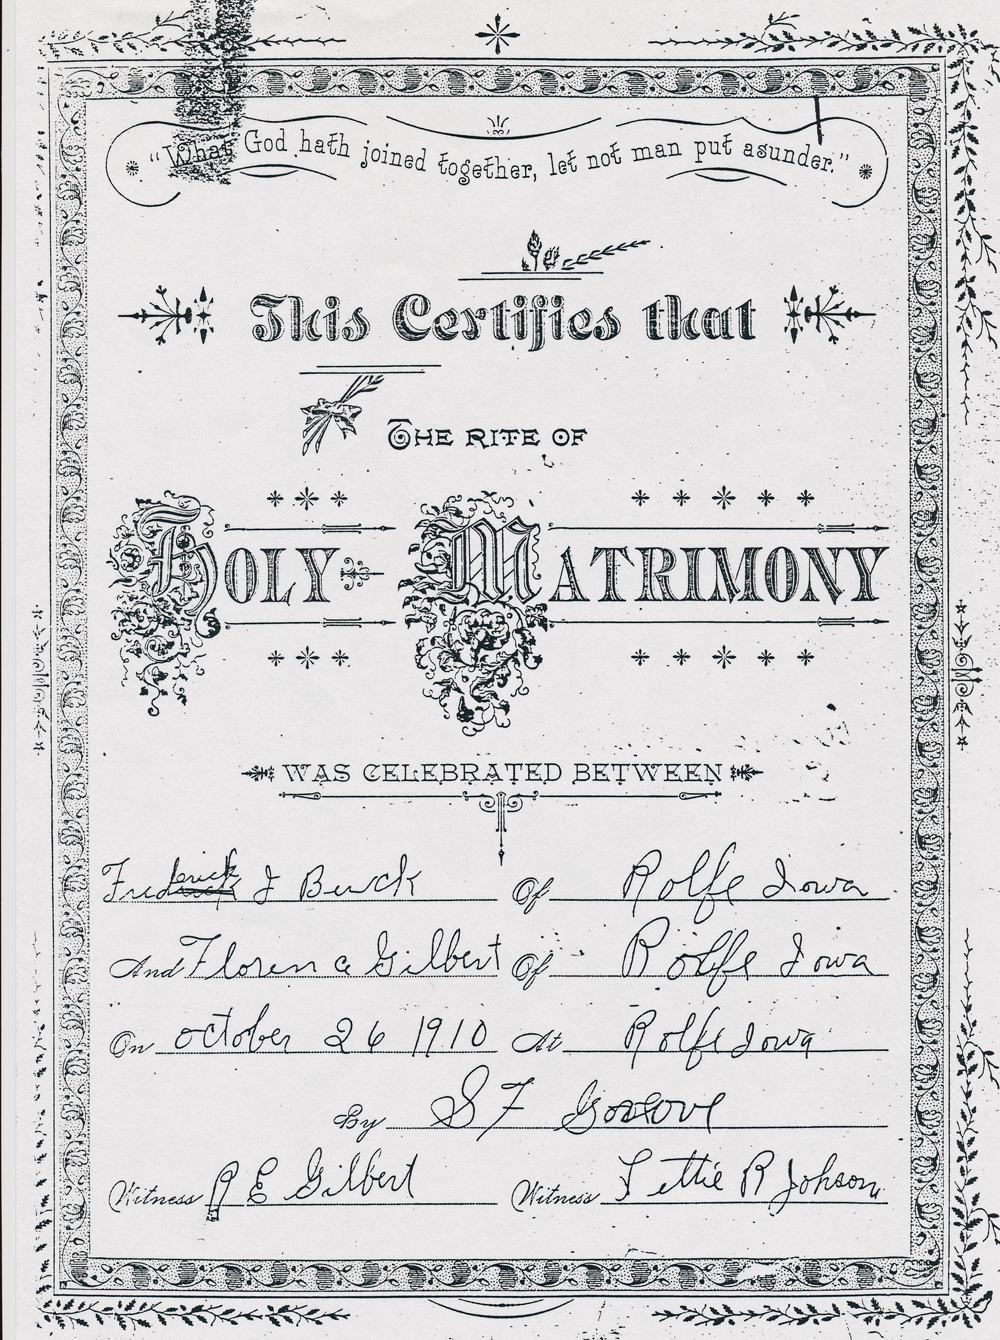 "What God hath joined together, let not man put asunder."
This Certifies that
THE RITE OF
HOLY MATRIMONY
WAS CELEBRATED BETWEEN
Frederick J Buck Of Rolfe Iowa
And Florence Gilbert Of Rolfe Iowa
On october 26 1910 At Rolfe Iowa
By S F
Witness R E Gilbert Witness Lettie R Johson